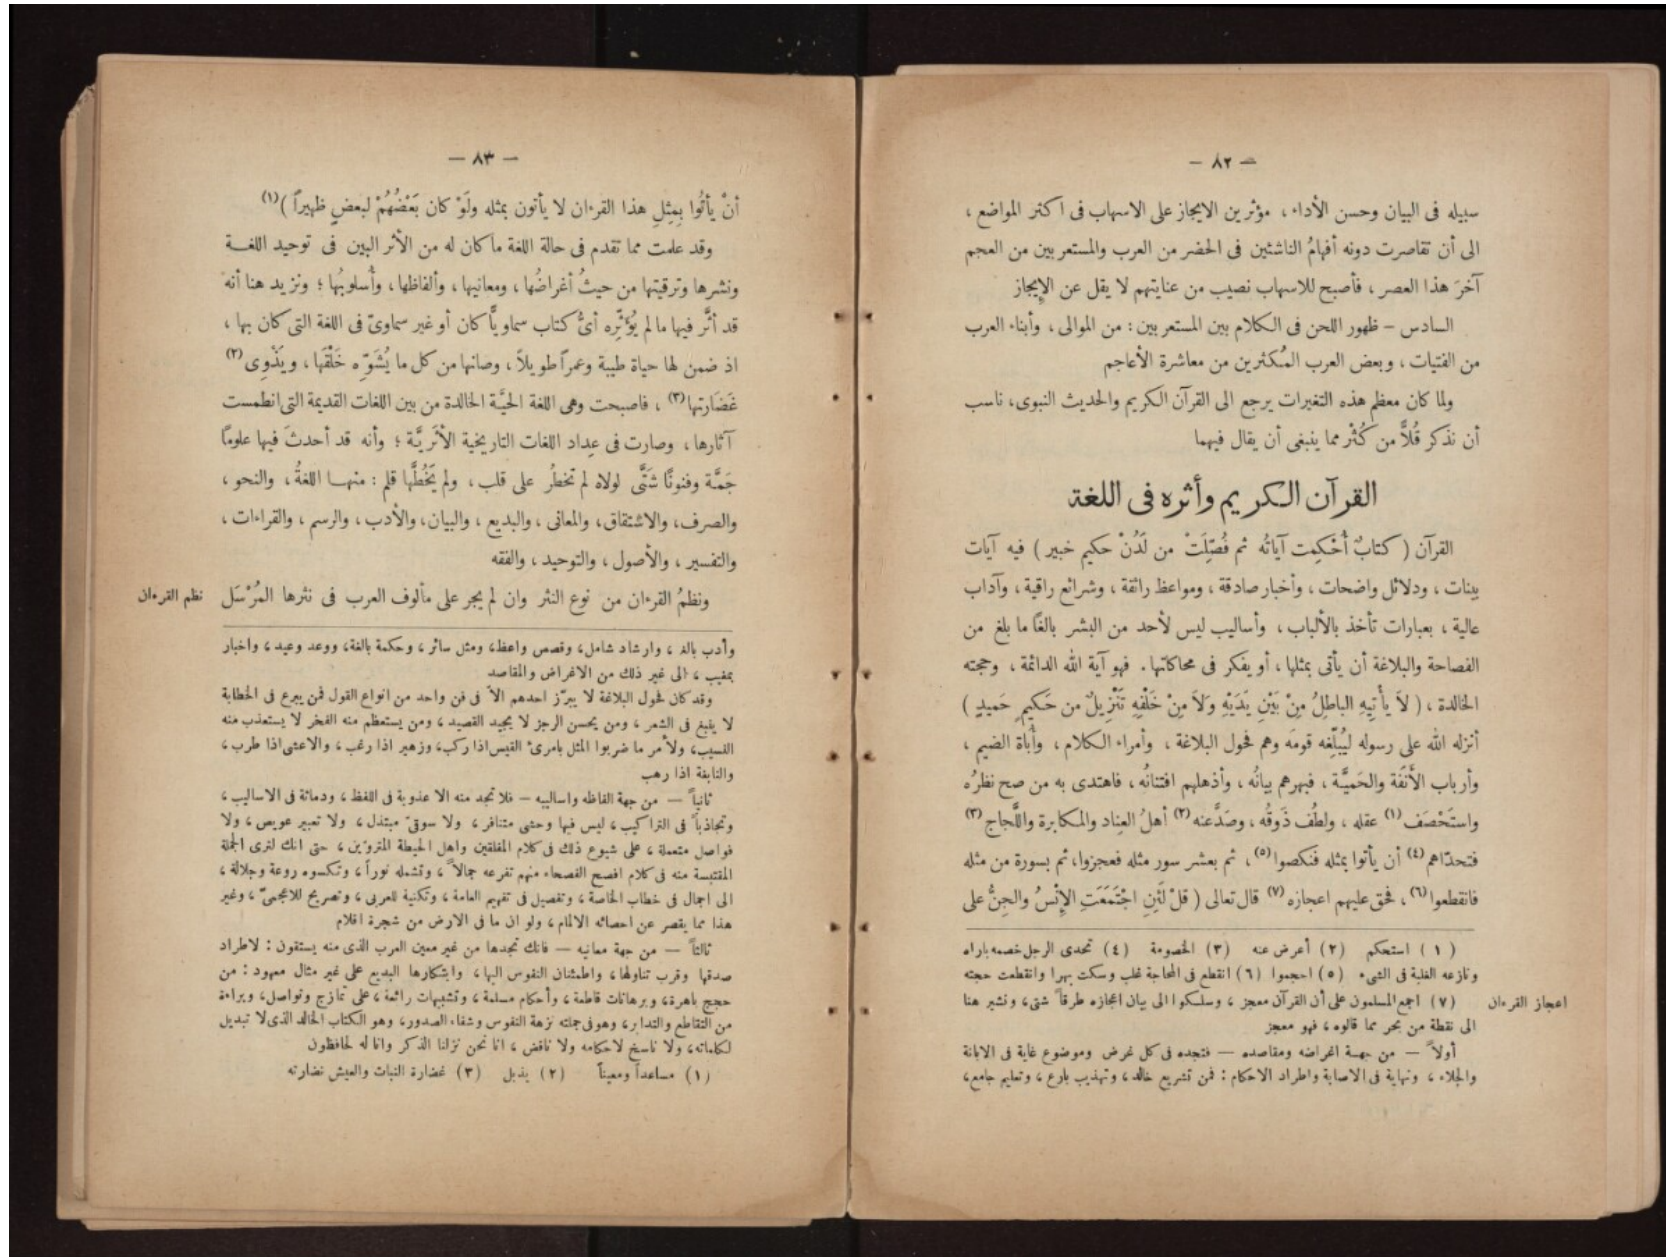 — ٨٢ —
سبيله فى البيان وحسن الأداء ، مؤثرين الايجاز على الاسهاب فى اكثر المواضع ،
الى أن تقاصرت دونه أفهامُ الناشئين فى الحضر من العرب والمستعربين من العجم
آخرَ هذا العصر ، فأصبح للاسهاب نصيب من عنايتهم لا يقل عن الإيجاز
السادس – ظهور اللحن فى الكلام بين المستعربين : من الموالى ، وأبناء العرب
من الفتيات ، وبعض العرب المُكثرين من معاشرة الأعاجم
ولما كان معظم هذه التغيرات يرجع الى القرآن الكريم والحديث النبوى، ناسب
أن نذكر قُلاًّ من كُثْر مما ينبغى أن يقال فيهما
القرآن الكريم وأثره فى اللغة
القرآن ( كتابٌ أُحْكِمت آياتُه ثم فُصِّلَتْ من لَدُنْ حكيم خبير ) فيه آيات
بينات ، ودلائل واضحات ، وأخبار صادقة ، ومواعظ رائقة ، وشرائع راقية ، وآداب
عالية ، بعبارات تأخذ بالألباب ، وأساليب ليس لأحد من البشر بالغًا ما بلغ من
الفصاحة والبلاغة أن يأتى بمثلها ، أو يفكر فى محاكاتها . فهو آية الله الدائمة ، وحجته
الخالدة ، ( لاَ يأْتيهِ الباطِلُ مِنْ بَيْنِ يَدَيْهِ وَلاَ مِنْ خَلْفِهِ تَنْزِيلٌ من حَكيمٍ حَميدٍ )
أنزله الله على رسوله ليُبلِّغه قومَه وهم فحول البلاغة ، وأمراء الكلام ، وأُباة الضيم ،
وأرباب الأَنَفة والحَميَّة ، فبهرهم بيانُه ، وأذهلهم افتنانُه ، فاهتدى به من صح نظرُه
واستَحْصَف (١) عقله ، ولطُف ذَوقُه ، وصَدَّ عنه (٢) أهلُ العِناد والمكابرة واللَّجاج (٣)
فتحدّاهم (٤) أن يأتوا بمثله فَنكصوا (٥) ، ثم بعشر سور مثله فعجزوا، ثم بسورة من مثله
فانقطعوا (٦) ، فحق عليهم اعجازه (٧) قال تعالى ( قلْ لَئِنِ اجْتَمَعَتِ الإِنْسُ والجِنُّ على
( ١ ) استحكم (٢) أعرض عنه (٣) الخصومة (٤) تحدى الرجل خصمه باراه
ونازعه الغلبة فى الشىء (٥) احجموا (٦) انقطع فى المحاجة غلب وسكت بهرا وانقطعت حجته
اعجاز القرءان
(٧) اجمع المسلمون على أن القرآن معجز ، وسلكوا الى بيان اعجازه طرقاً شتى، ونشير هنا
الى نقطة من بحر مما قالوه ، فهو معجز
أولاً — من جهة اغراضه ومقاصده — فتجده فى كل غرض وموضوع غاية فى الابانة
والجلاء ، ونهاية فى الاصابة واطراد الاحكام : فمن تشريع خالد، وتهذيب بارع ، وتعليم جامع،
— ٨٣ —
أنْ يأتُوا بِمِثلِ هذا القرءان لا يأتون بمثله ولَوْ كان بَعْضُهُمْ لبعضٍ ظهيراً ) (١)
وقد علمت مما تقدم فى حالة اللغة ما كان له من الأثر البين فى توحيد اللغة
ونشرها وترقيتها من حيثُ أغراضُها ، ومعانيها ، وألفاظها ، وأُسلوبُها ؛ ونزيد هنا أنه
قد أثَّر فيها ما لم يُؤثِّره أىُّ كتاب سماويًّا كان أو غير سماوىّ فى اللغة التى كان بها ،
اذ ضمن لها حياة طيبة وعمراً طويلاً ، وصانها من كل ما يُشَوِّه خَلْقَها ، ويَذْوِى (٢)
غَضَارتها (٣) ، فاصبحت وهى اللغة الحيَّة الخالدة من بين اللغات القديمة التى انطمست
آثارها ، وصارت فى عِداد اللغات التاريخية الأثريَّة ؛ وأنه قد أحدثَ فيها علومًا
جَمَّة وفنونًا شَتَّى لولاه لم تخطُر على قلب ، ولم يَخُطَّها قلم : منها اللغةُ ، والنحو ،
والصرف، والاشتقاق، والمعانى ، والبديع ، والبيان، والأدب ، والرسم ، والقراءات ،
والتفسير ، والأصول ، والتوحيد ، والفقه
ونظمُ القرءان من نوع النثر وان لم يجر على مألوف العرب فى نثرها المُرْسَل
نظم القرءان
وأدب بالغ ، وارشاد شامل، وقصص واعظ، ومثل سائر ، وحكمة بالغة، ووعد وعيد ، واخبار
بمغيب ، الى غير ذلك من الاغراض والمقاصد
وقد كان فحول البلاغة لا يبرّز احدهم الاّ فى فن واحد من انواع القول فمن يبرع فى الخطابة
لا ينبغ فى الشعر ، ومن يحسن الرجز لا يجيد القصيد ، ومن يستعظم منه الفخر لا يستعذب منه
النسيب، ولأمر ما ضربوا المثل بامرئ القيس اذا ركب، وزهير اذا رغب ، والاعشى اذا طرب ،
والنابغة اذا رهب
ثانياً — من جهة الفاظه واساليبه – فلا تجد منه الا عذوبة فى اللفظ ، ودماثة فى الاساليب ،
وتجاذباً فى التراكيب ، ليس فيها وحشى متنافر ، ولا سوقىّ مبتذل ، ولا تعبير عويص ، ولا
فواصل متعملة ، على شيوع ذلك فى كلام المفلقين واهل الحيطة المتروّين ، حتى انك لترى الجملة
المقتبسة منه فى كلام افصح الفصحاء منهم تفرعه جمالاً ، وتشمله نوراً ، وتكسوه روعة وجلالة ،
الى اجمال فى خطاب الخاصة ، وتفصيل فى تفهيم العامة ، وتكنية للعربى ، وتصريح للاعجمىّ ، وغير
هذا مما يقصر عن احصائه الالمام ، ولو ان ما فى الارض من شجرة اقلام
ثالثاً — من جهة معانيه — فانك تجدها من غير معين العرب الذى منه يستقون : لاطراد
صدقها وقرب تناولها ، واطمئنان النفوس اليها ، وابتكارها البديع على غير مثال معهود : من
حجج باهرة ، وبرهانات قاطعة ، وأحكام مسلمة ، وتشبيهات رائعة ، على تمازج وتواصل، وبراءة
من التقاطع والتدابر، وهو فى جملته نزهة النفوس وشفاء الصدور، وهو الكتاب الخالد الذى لا تبديل
لكلماته، ولا ناسخ لاحكامه ولا ناقض ، انا نحن نزلنا الذكر وانا له لحافظون
(١) مساعداً ومعيناً (٢) يذبل (٣) غضارة النبات والعيش نضارته